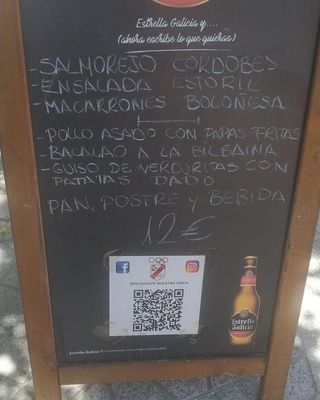 Estrella Galicia y....
(ahora escribe lo que quieras)
- SALMOREJO CORDOBES
- ENSALADA ESTORIL
- MACARRONES BOLONESA
- POLLO ASADO CON PAPAS FRITAS
- BACALAO A LA BILBAINA
- GUISO DE VERDURITAS CON
PATATAS DADO
PAN, POSTRE Y BEBIDA
12€
DESCARGATE NUESTRA CARTA
Estrella
Galicia
Estrella Galicia